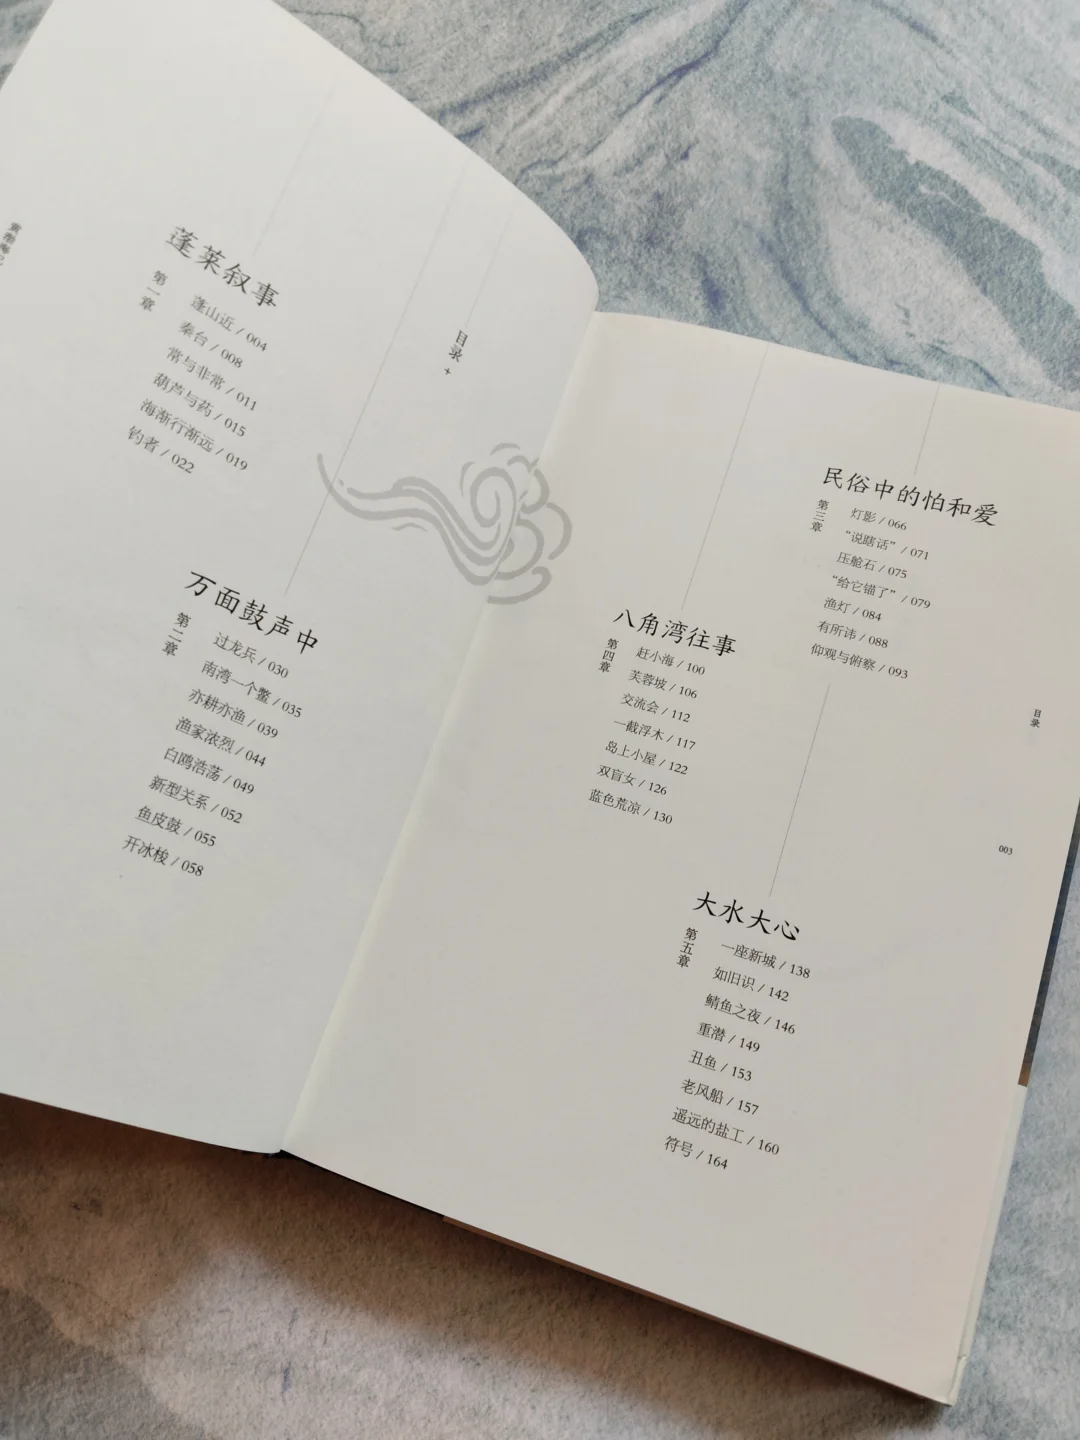 目录+
蓬莱叙事
第一章
蓬山近 / 004
秦台 / 008
常与非常 / 011
葫芦与药 / 015
海渐行渐远 / 019
钓者 / 022
万面鼓声中
第二章
过龙兵 / 030
南湾一个鳖 / 035
亦耕亦渔 / 039
渔家浓烈 / 044
白鸥浩荡 / 049
新型关系 / 052
鱼皮鼓 / 055
开冰梭 / 058
民俗中的怕和爱
第三章
灯影 / 066
“说瞎话” / 071
压舱石 / 075
“给它锚了” / 079
渔灯 / 084
有所讳 / 088
仰观与俯察 / 093
八角湾往事
第四章
赶小海 / 100
芙蓉坡 / 106
交流会 / 112
一截浮木 / 117
岛上小屋 / 122
双盲女 / 126
蓝色荒凉 / 130
大水大心
第五章
一座新城 / 138
如旧识 / 142
鲭鱼之夜 / 146
重潜 / 149
丑鱼 / 153
老风船 / 157
遥远的盐工 / 160
符号 / 164
目录
003